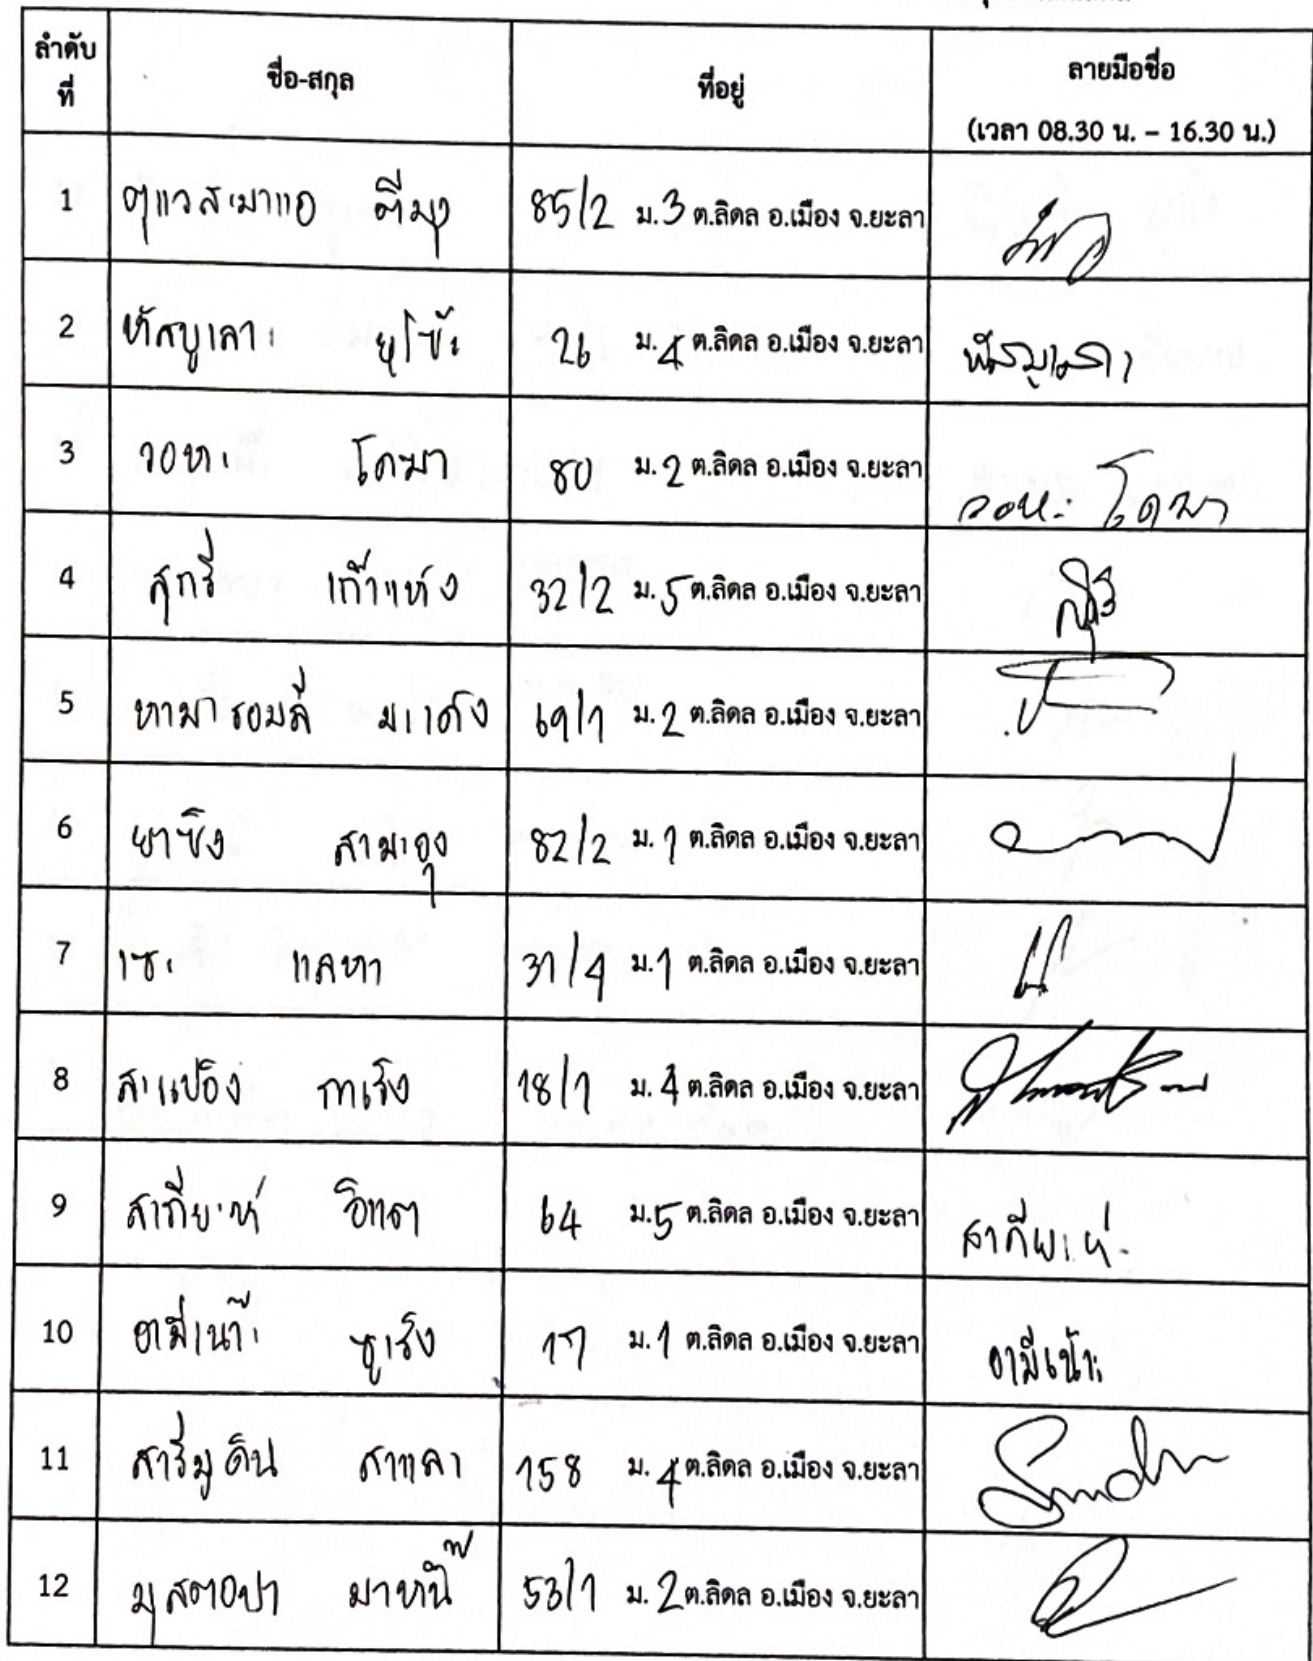 ลำดับที่ ชื่อ-สกุล ที่อยู่ ลายมือชื่อ
(เวลา 08.30 น. – 16.30 น.)
1 ตุแวสะมาแอ ตีมุง 85/2 ม.3 ต.ลิดล อ.เมือง จ.ยะลา
2 หัสบูเลาะ ยูโซ๊ะ 26 ม.4 ต.ลิดล อ.เมือง จ.ยะลา
3 วอหะ โดฆา 80 ม.2 ต.ลิดล อ.เมือง จ.ยะลา วอหะ โดฆา
4 สุกรี เก้าแห่ง 32/2 ม.5 ต.ลิดล อ.เมือง จ.ยะลา
5 หามารอมลี มะเด็ง 69/1 ม.2 ต.ลิดล อ.เมือง จ.ยะลา
6 ยาซิง สามะอุง 82/2 ม.1 ต.ลิดล อ.เมือง จ.ยะลา
7 เซะ แลหา 31/4 ม.1 ต.ลิดล อ.เมือง จ.ยะลา
8 สะแปอิง กาเร็ง 18/1 ม.4 ต.ลิดล อ.เมือง จ.ยะลา
9 สากียะห์ อิแต 64 ม.5 ต.ลิดล อ.เมือง จ.ยะลา สากียะห์
10 อามีเน๊าะ ซูเร็ง 17 ม.1 ต.ลิดล อ.เมือง จ.ยะลา อามีเน้าะ
11 สารีมูดิน สาแลา 158 ม.4 ต.ลิดล อ.เมือง จ.ยะลา
12 มุสตอปา มาหนิ๊ 53/1 ม.2 ต.ลิดล อ.เมือง จ.ยะลา